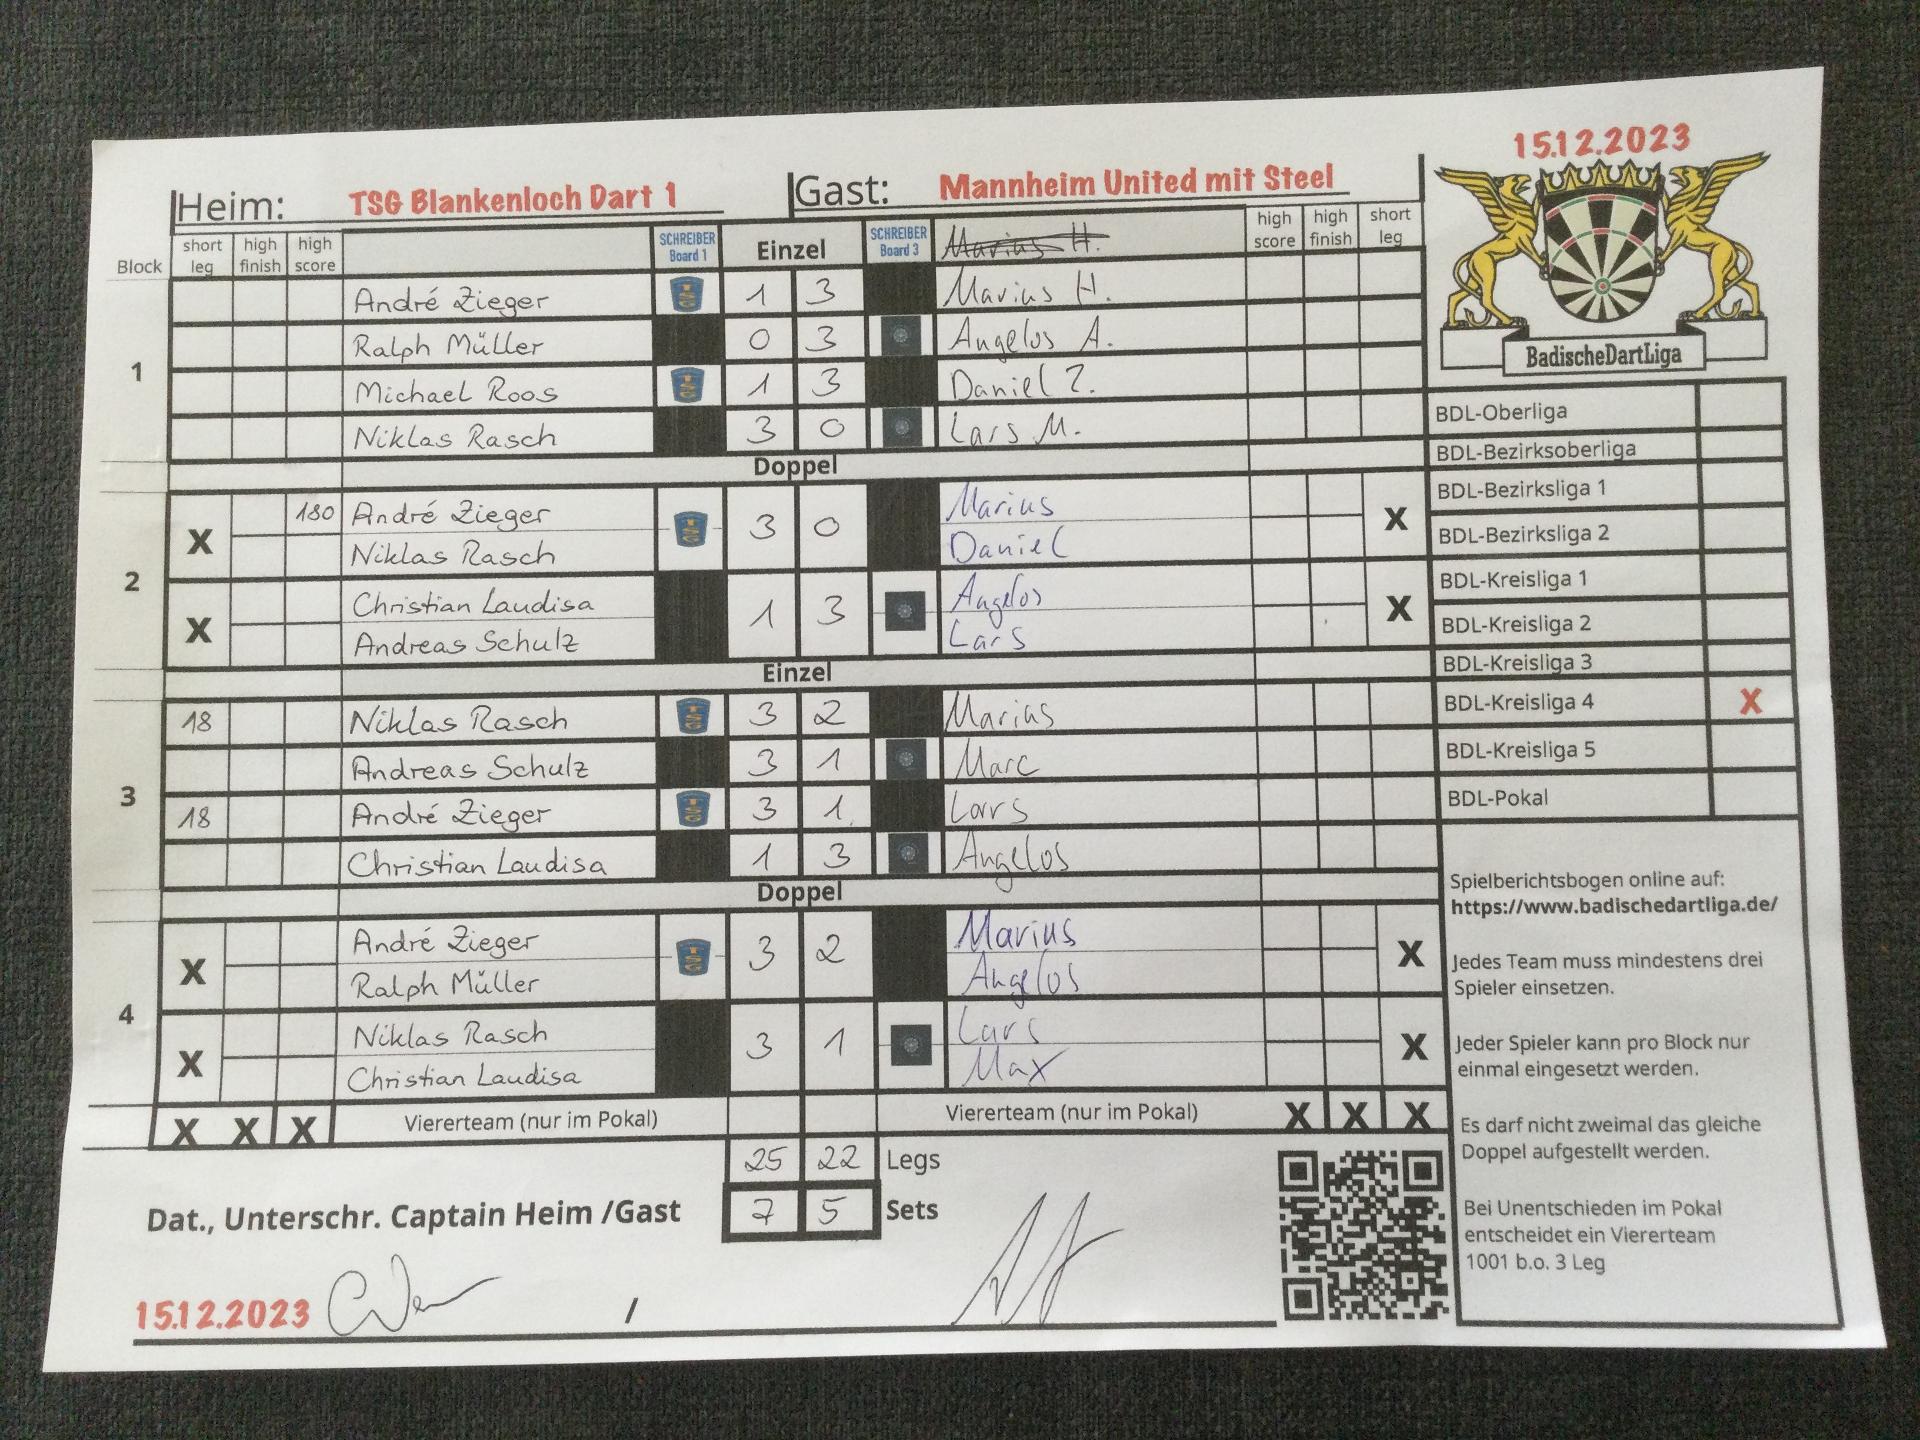 15.12.2023
Heim: TSG Blankenloch Dart 1 Gast: Mannheim United mit Steel
Block short leg high finish high score SCHREIBER Board 1 Einzel SCHREIBER Board 3 Marius H. high score high finish short leg
1
André Zieger 1 3 Marius H.
Ralph Müller 0 3 Angelos A.
Michael Roos 1 3 Daniel Z.
Niklas Rasch 3 0 Lars M.
Doppel
2
X 180 André Zieger 3 0 Marius X
Niklas Rasch Daniel
X Christian Laudisa 1 3 Angelos X
Andreas Schulz Lars
Einzel
3
18 Niklas Rasch 3 2 Marius
Andreas Schulz 3 1 Marc
18 André Zieger 3 1 Lars
Christian Laudisa 1 3 Angelos
Doppel
4
X André Zieger 3 2 Marius X
Ralph Müller Angelos
X Niklas Rasch 3 1 Lars X
Christian Laudisa Max
X X X Vierer­team (nur im Pokal) Viererteam (nur im Pokal) X X X
25 22 Legs
Dat., Unterschr. Captain Heim /Gast 7 5 Sets
15.12.2023 /
BadischeDartLiga
BDL-Oberliga
BDL-Bezirksoberliga
BDL-Bezirksliga 1
BDL-Bezirksliga 2
BDL-Kreisliga 1
BDL-Kreisliga 2
BDL-Kreisliga 3
BDL-Kreisliga 4 X
BDL-Kreisliga 5
BDL-Pokal
Spielberichtsbogen online auf:
https://www.badischedartliga.de/
Jedes Team muss mindestens drei
Spieler einsetzen.
Jeder Spieler kann pro Block nur
einmal eingesetzt werden.
Es darf nicht zweimal das gleiche
Doppel aufgestellt werden.
Bei Unentschieden im Pokal
entscheidet ein Viererteam
1001 b.o. 3 Leg